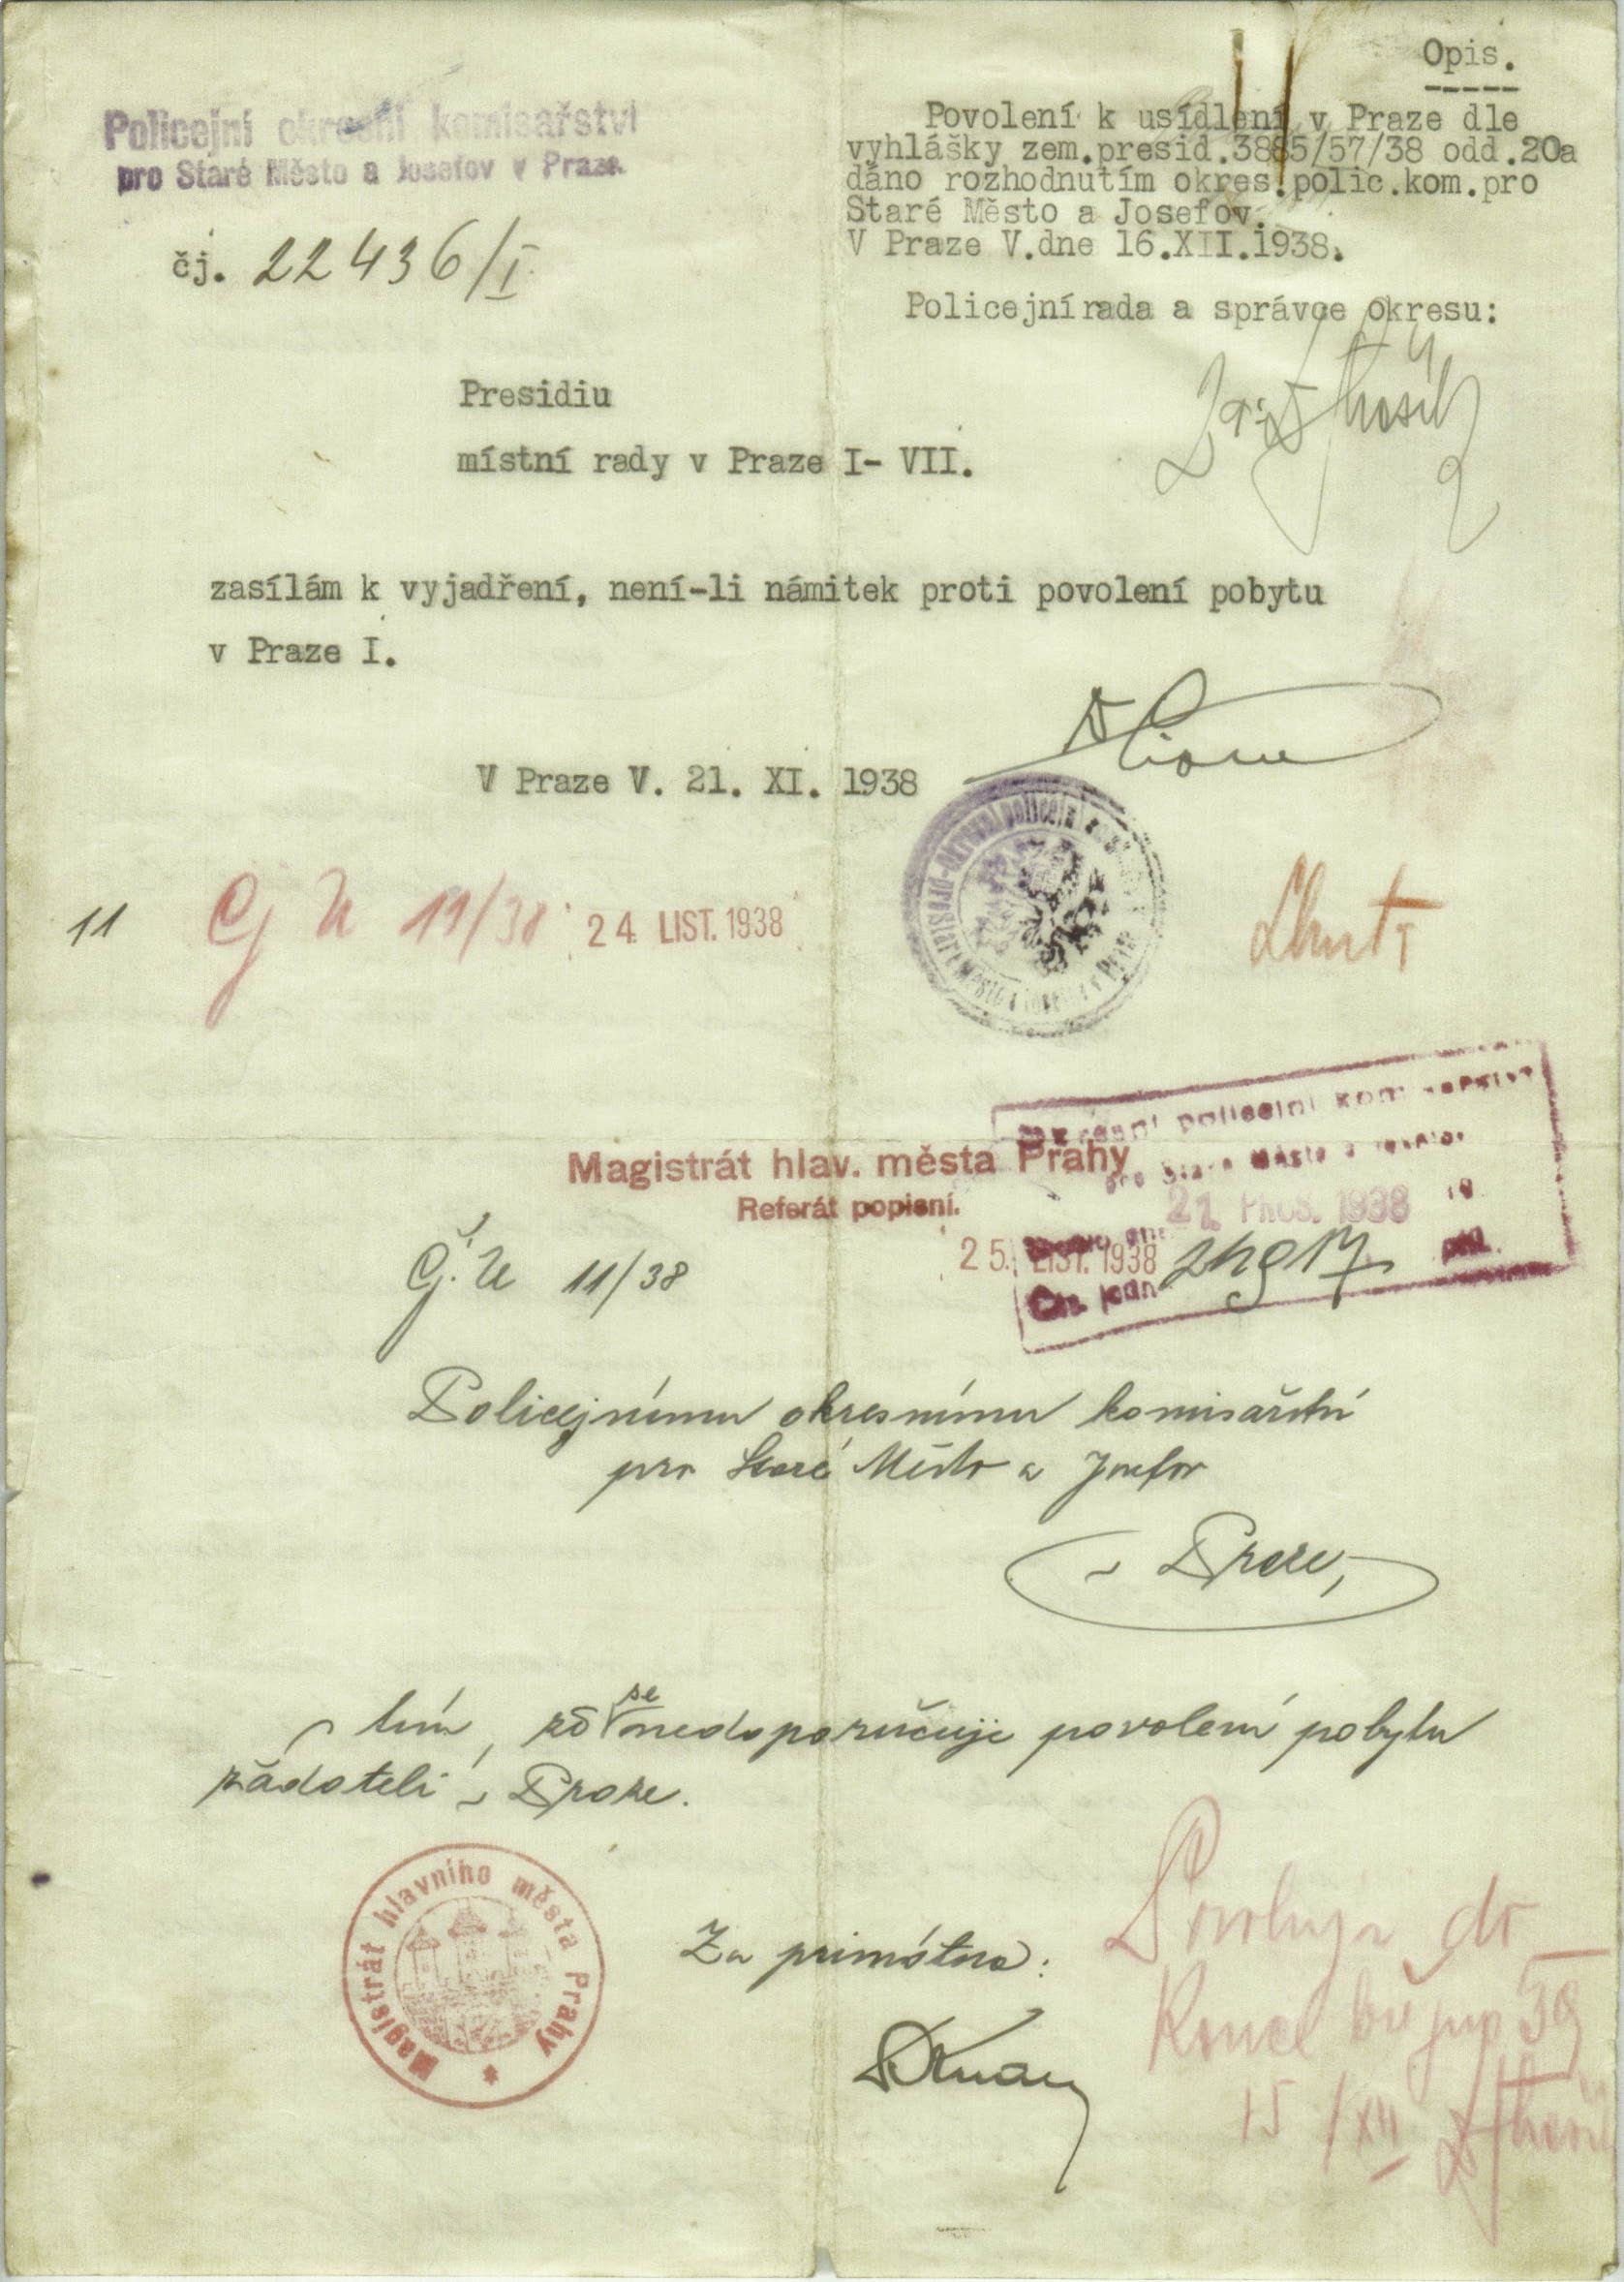 Opis.
Policejní okresní komisařství
pro Staré Město a Josefov v Praze.
čj. 22436/I
Povolení k usídlení v Praze dle
vyhlášky zem.presid.3885/57/38 odd.20a
dáno rozhodnutím okres.polic.kom.pro
Staré Město a Josefov.
V Praze V.dne 16.XII.1938.
Policejní rada a správce okresu:
Presidiu
místní rady v Praze I- VII.
zasílám k vyjadření, není-li námitek proti povolení pobytu
v Praze I.
V Praze V. 21. XI. 1938
11
24. LIST. 1938
Magistrát hlav. města Prahy
Referát popisní.
okresní policejní komisařství
pro Staré Město a Josefov
21. PROS. 1938 19
25. LIST. 1938
Čís. jedn.
Čj. U 11/38
Policejnímu okresnímu komisařství
pro Staré Město a Josefov
v Praze,
s tím, že se nedoporučuje povolení pobytu
žadateli v Praze.
Magistrát hlavního města Prahy
Za primátora:
Povoluji do
konce
15/XII